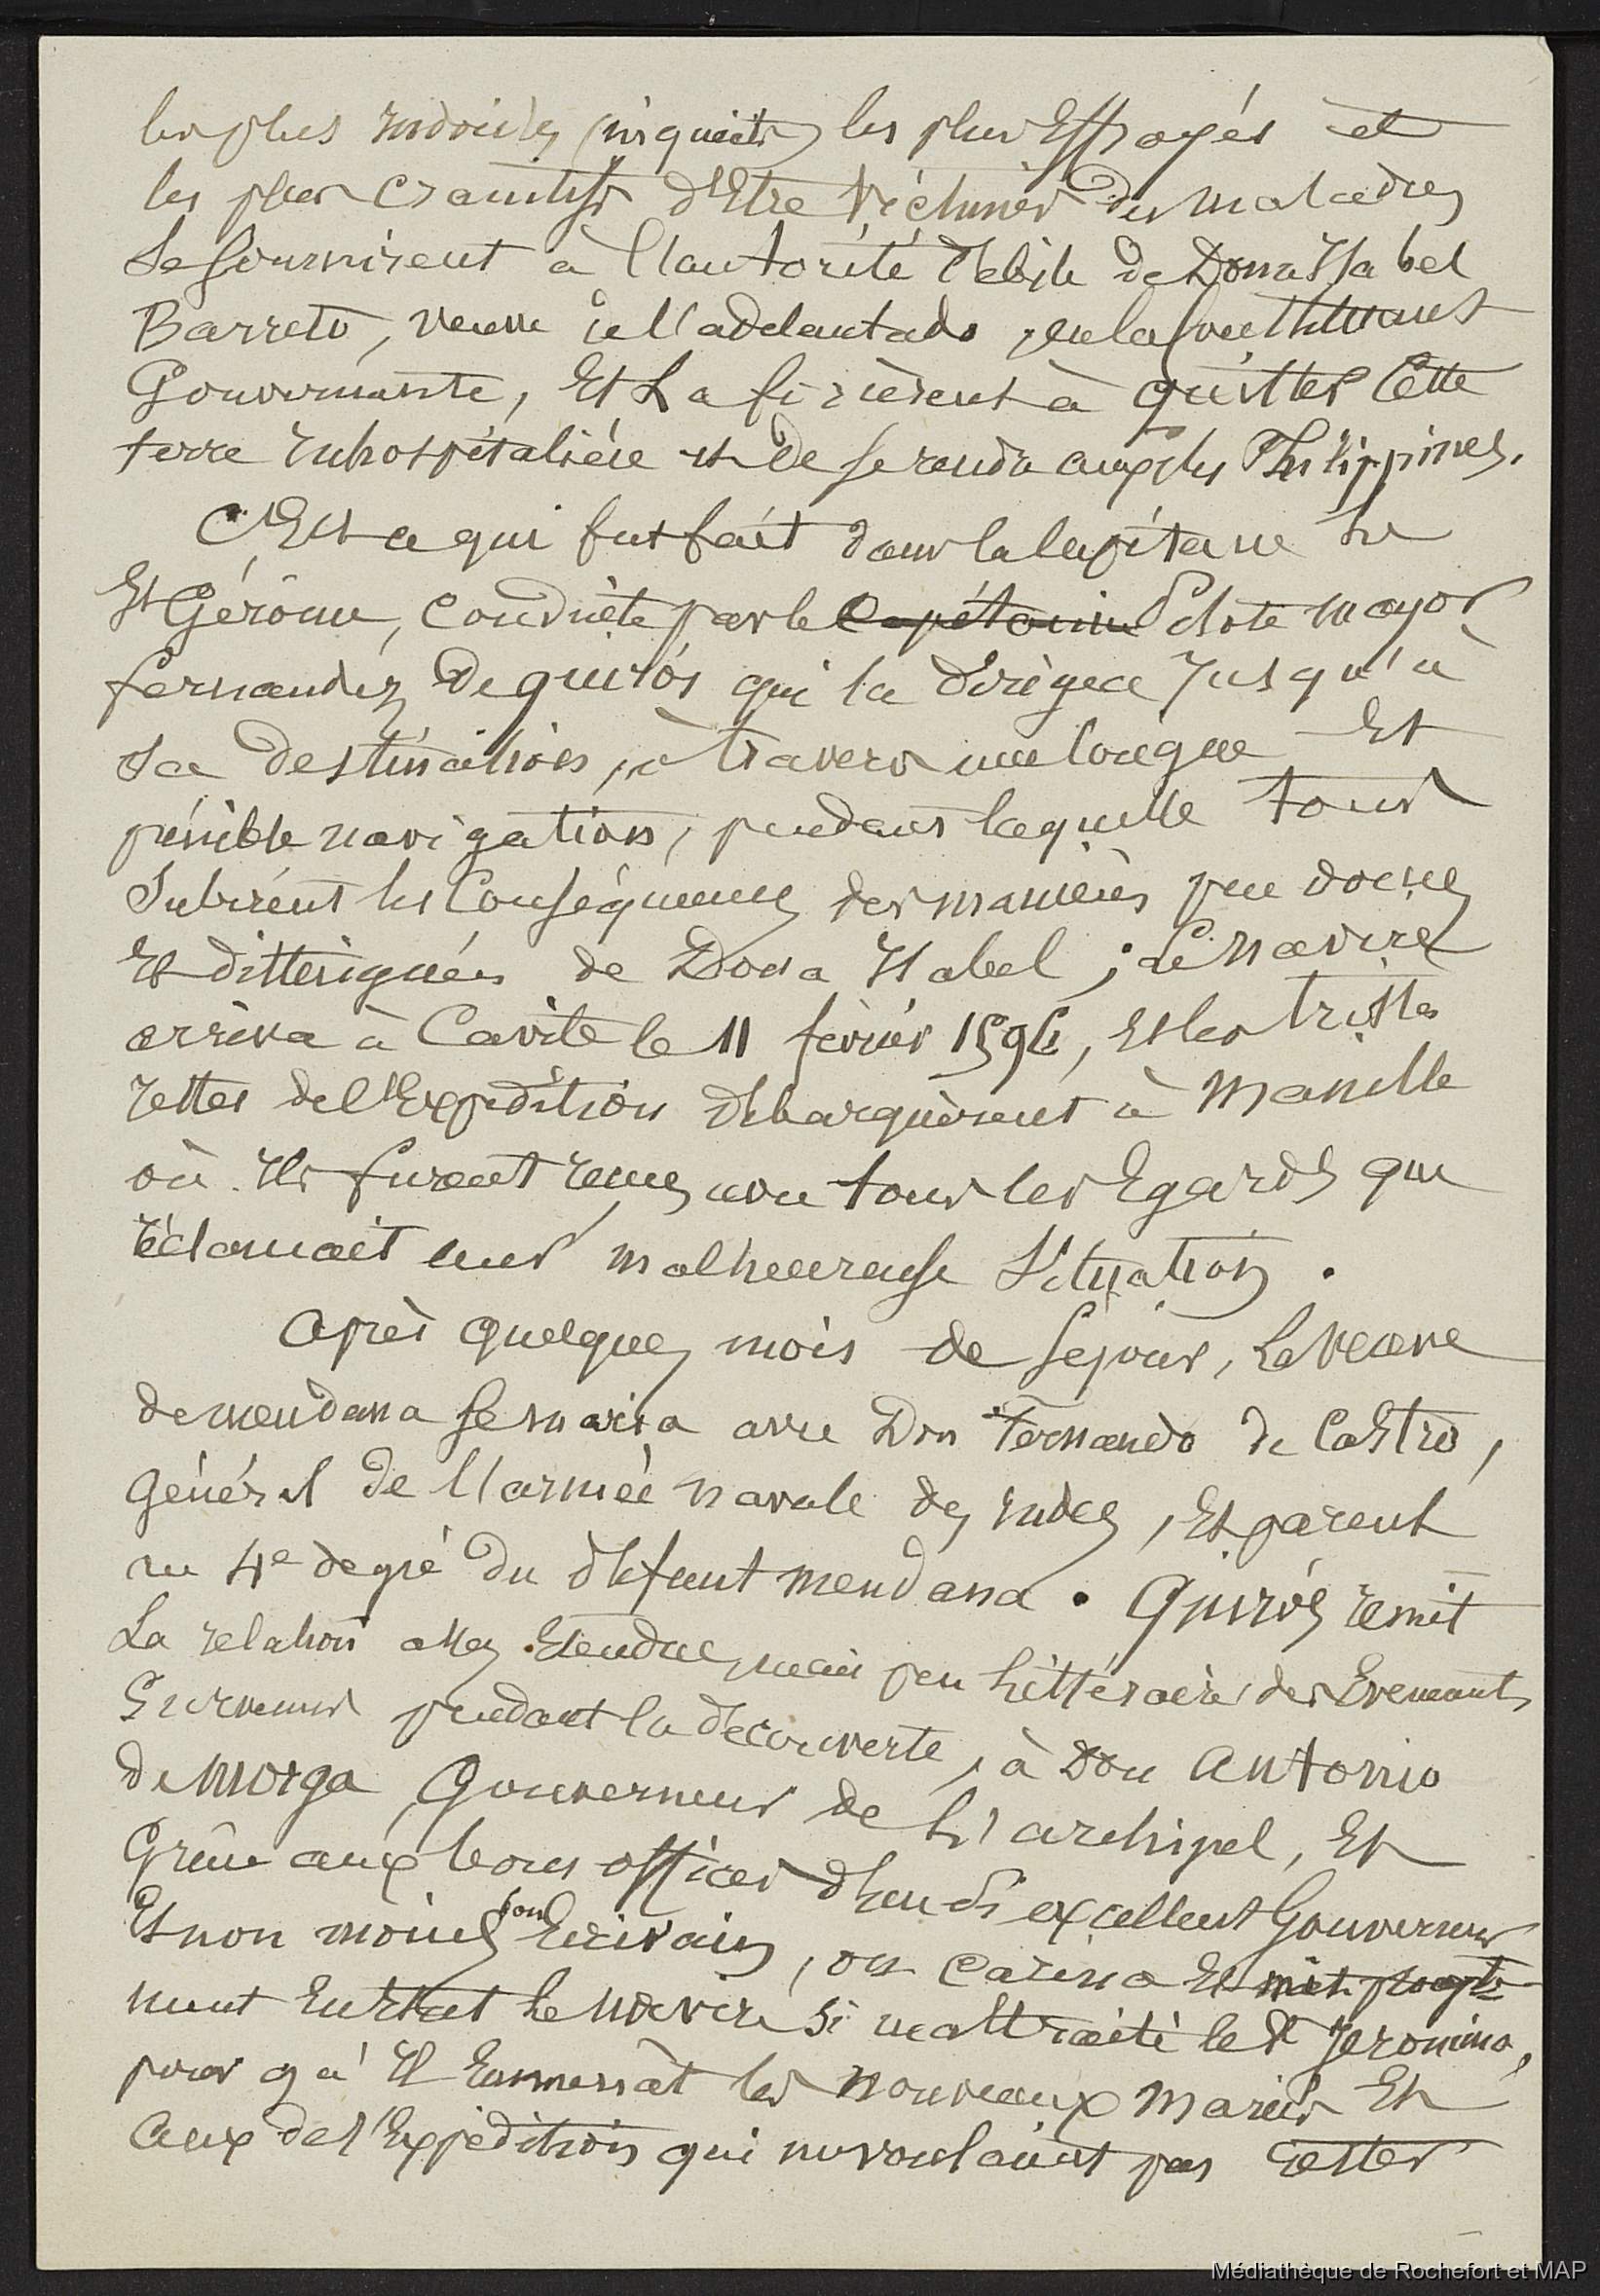 les plus redoutés jusqu'ici, les plus Effrayés et
les plus craintifs d'Etre victimes des maladies
se soumirent à l'autorité débile de Dona Isabel
Barreto, veuve de l'adelantado,
Gouvernante, Et La firièrent à quitter Cette
terre Inhospitalière et de se rendre aux Iles Philippines.
C'Est ce qui fut fait dans la Capitane Le
St Gérôme, conduite par le Capitaine Pilote mayor
fernandez De quirós qui la dirigea Jusqu'à
sa Destination, à travers une longue Et
pénible navigation, pendant laquelle tous
Subirent les Conséquences des manières peu douces
Et distinguées de Dona Isabel ; Le navire
arriva à Cavite le 11 février 1596, Et les tristes
restes de l'Expédition débarquèrent à Manille
où Ils furent reçus avec tous les Egards que
réclamait leur malheureuse Situation.
Après quelques mois de séjour, La veuve
de mendana se maria avec Don Fernando de Castro,
Général de l'armée navale des Indes, Et parent
au 4e degré du défunt mendana. Quirós remit
La relation assez Etendue, mais peu littéraire des Evenements
Survenus pendant la découverte, à Don Antonio
de Morga Gouverneur de L'archipel, Et
Grâce aux bons offices d'un Si excellent Gouverneur
Et non moins bon Ecrivain, on caréna Et mit prompte
ment En Etat le navire si maltraité le St Jeronimo,
pour qu'Il Emmenât les nouveaux mariés Et
Ceux de l'Expédition qui ne voulaient pas rester
Médiathèque de Rochefort et MAP